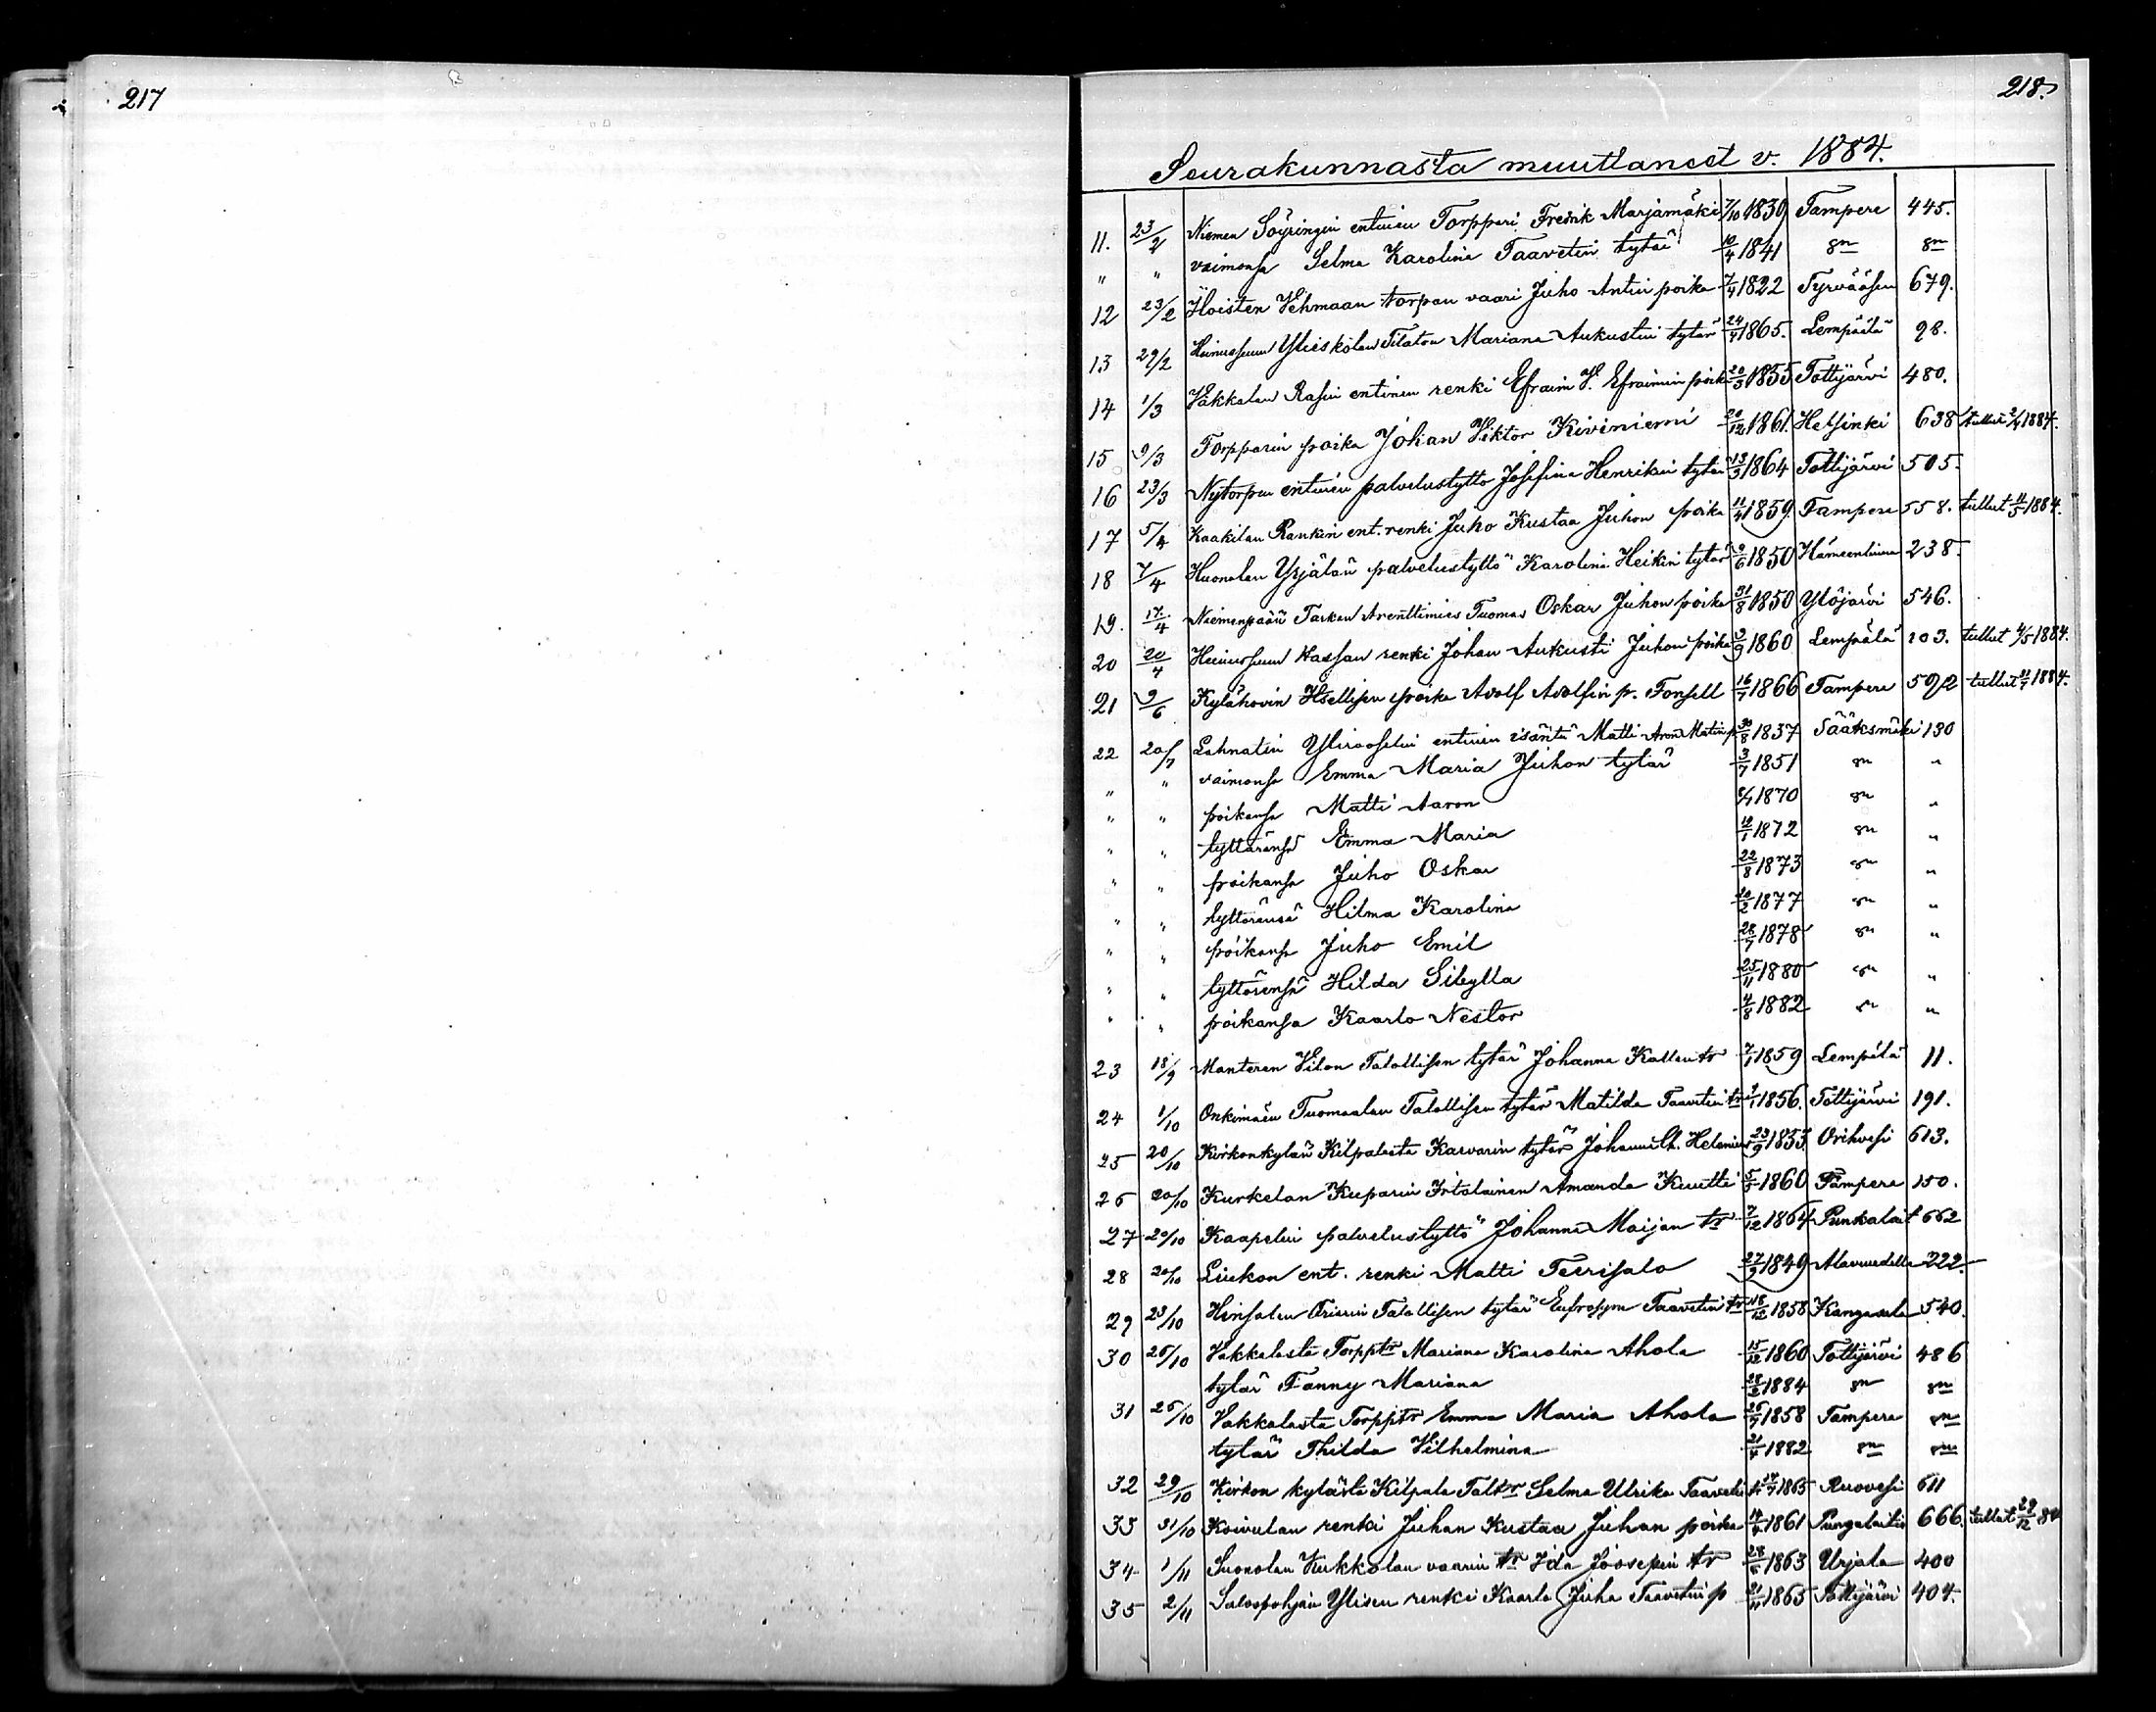 217
218.
Seurakunnasta muuttaneet v. 1884.
11. 23/2 Niemen Söyringin entinen Torppari Fredrik Marjamäki 7/10 1839 Tampere 445.
" " vaimonsa Selma Karolina Taavetin tytär 10/4 1841 sn sn
12 23/2 Hoisten Vehmaan torpan vaari Juho Antin poika 7/4 1822 Tyrvääsen 679.
13 29/2 Ylieskolan Mariana Aukustin tytär 24/4 1865. Lempäälä 98.
14 1/3 Väkkälän Rasin entinen renki Efraim V. Efraimin poika 20/3 1855 Tottijärvi 480.
15 9/3 Torpparin poika Johan Viktor Kiviniemi 20/12 1861. Helsinki 638 tullut 2/4 1884.
16 23/3 Nytorpan entinen palvelustyttö Josefina Henrikin tytär 13/3 1864 Tottijärvi 505.
17 5/4 Kaakilan Rankin ent. renki Juho Kustaa Juhon poika 11/4 1859. Tampere 558. tullut 11/5 1884.
18 7/4 Huonolan Yrjälän palvelustyttö Karolina Heikin tytär 9/6 1850 Hämeenlinna 238.
19. 17/4 Niemenpään Tarkan Arenttimies Tuomas Oskar Juhon poika 31/8 1850 Ylöjärvi 546.
20 20/4 Hassan renki Johan Aukusti Juhon poika 3/9 1860 Lempäälä 103. tullut 4/5 1884.
21 9/6 Kylähovin Itsellisen poika Adolf Adolfin p. Fonsell 16/7 1866 Tampere 592 tullut 21/7 1884.
22 20/7 Lahnatin entinen isäntä Matti Aron Matin p. 30/8 1837 Sääksmäki 130
" " vaimonsa Emma Maria Juhon tytär 3/7 1851 sn "
" " poikansa Matti Aaron 8/4 1870 sn "
" " tyttärensä Emma Maria 12/1 1872 sn "
" " poikansa Juho Oskar 22/8 1873 sn "
" " tyttärensä Hilma Karolina 10/2 1877 sn "
" " poikansa Juho Emil 28/7 1878 sn "
" " tyttärensä Hilda Sibylla 25/11 1880 sn "
" " poikansa Kaarlo Nestor 4/8 1882 sn "
23 18/9 Manteren Vilon Talollisen tytär Johanna Kallen tr 7/1 1859 Lempäälä 11.
24 1/10 Onkimäen Tuomaalan Talollisen tytär Matilda Taavetin tr 1856. Tottijärvi 191.
25 20/10 Kirkonkylän Kilpalasta Karvarin tytär Helenius 23/9 1855 Orihvesi 613.
26 20/10 Kurkelan Kuparin Irtolainen Amanda Kuutti 5/5 1860 Tampere 150.
27 20/10 Kaapelin palvelustyttö Johanna Maijan tr 7/12 1864 Punkalait 662
28 20/10 Liukon ent. renki Matti Teerisalo 27/9 1849 222.
29 23/10 Hinsalan Talollisen tytär Eufrosyne Taavetin tr 18/12 1858 Kangasala 540.
30 25/10 Vakkalasta Torpptr Mariana Karolina Ahola 15/12 1860 Tottijärvi 486
tytär Fanny Mariana 28/2 1884 sn sn
31 25/10 Vakkalasta Torpptr Emma Maria Ahola 26/7 1858 Tampere sn
tytär Thilda Vilhelmina 21/4 1882 sn sn
32 29/10 Kirkon kylästä Kilpala Taltr Selma Ulrika Taavetin 1865 Ruovesi 611
33 31/10 Koivulan renki Juhan Kustaa Juhan poika 14/4 1861 Pungalaitio 666. tullut 29/12 84
34 1/11 Suonolan Kukkolan vaarin tr Ida Joosepin tr 28/6 1863 Urjala 400
35 2/11 Salospohjan Ylisen renki Kaarlo Juha Taavetin p 21/11 1865 Tottijärvi 404.